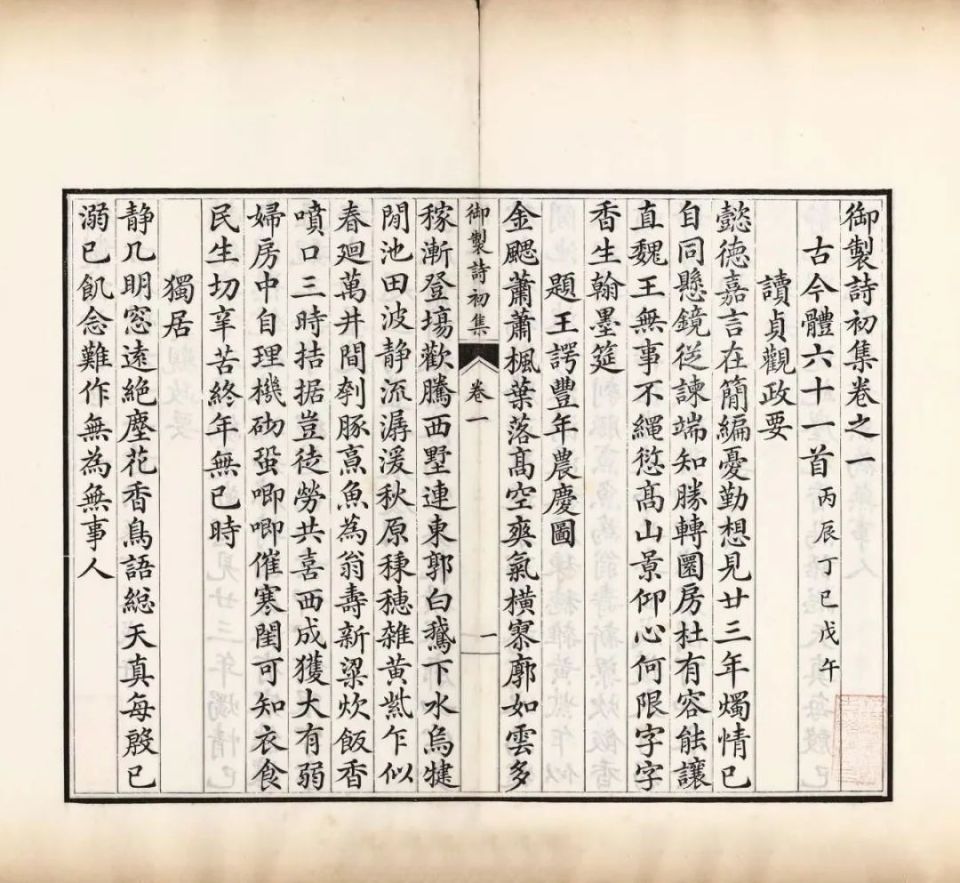 御製詩初集卷之一
古今體六十一首 丙辰丁巳戊午
讀貞觀政要
懿德嘉言在簡編憂勤想見廿三年燭情已
自同懸鏡從諫端知勝轉圜房杜有容能讓
直魏王無事不繩愆高山景仰心何限字字
香生翰墨筵
題王諤豐年農慶圖
金颸蕭蕭楓葉落高空爽氣橫寥廓如雲多
御製詩初集 卷一 一
稼漸登塲歡騰西墅連東郭白鵝下水烏犍
閒池田波静流潺湲秋原穗雜黄紫乍似
春廻萬井間刲豚烹魚為翁壽新粱炊飯香
噴口三時拮据豈徒勞共喜西成獲大有弱
婦房中自理機砌蛩唧唧催寒閨可知衣食
民生切辛苦終年無已時
獨居
静几明窓遠絶塵花香鳥語総天真每殷已
溺已飢念難作無為無事人